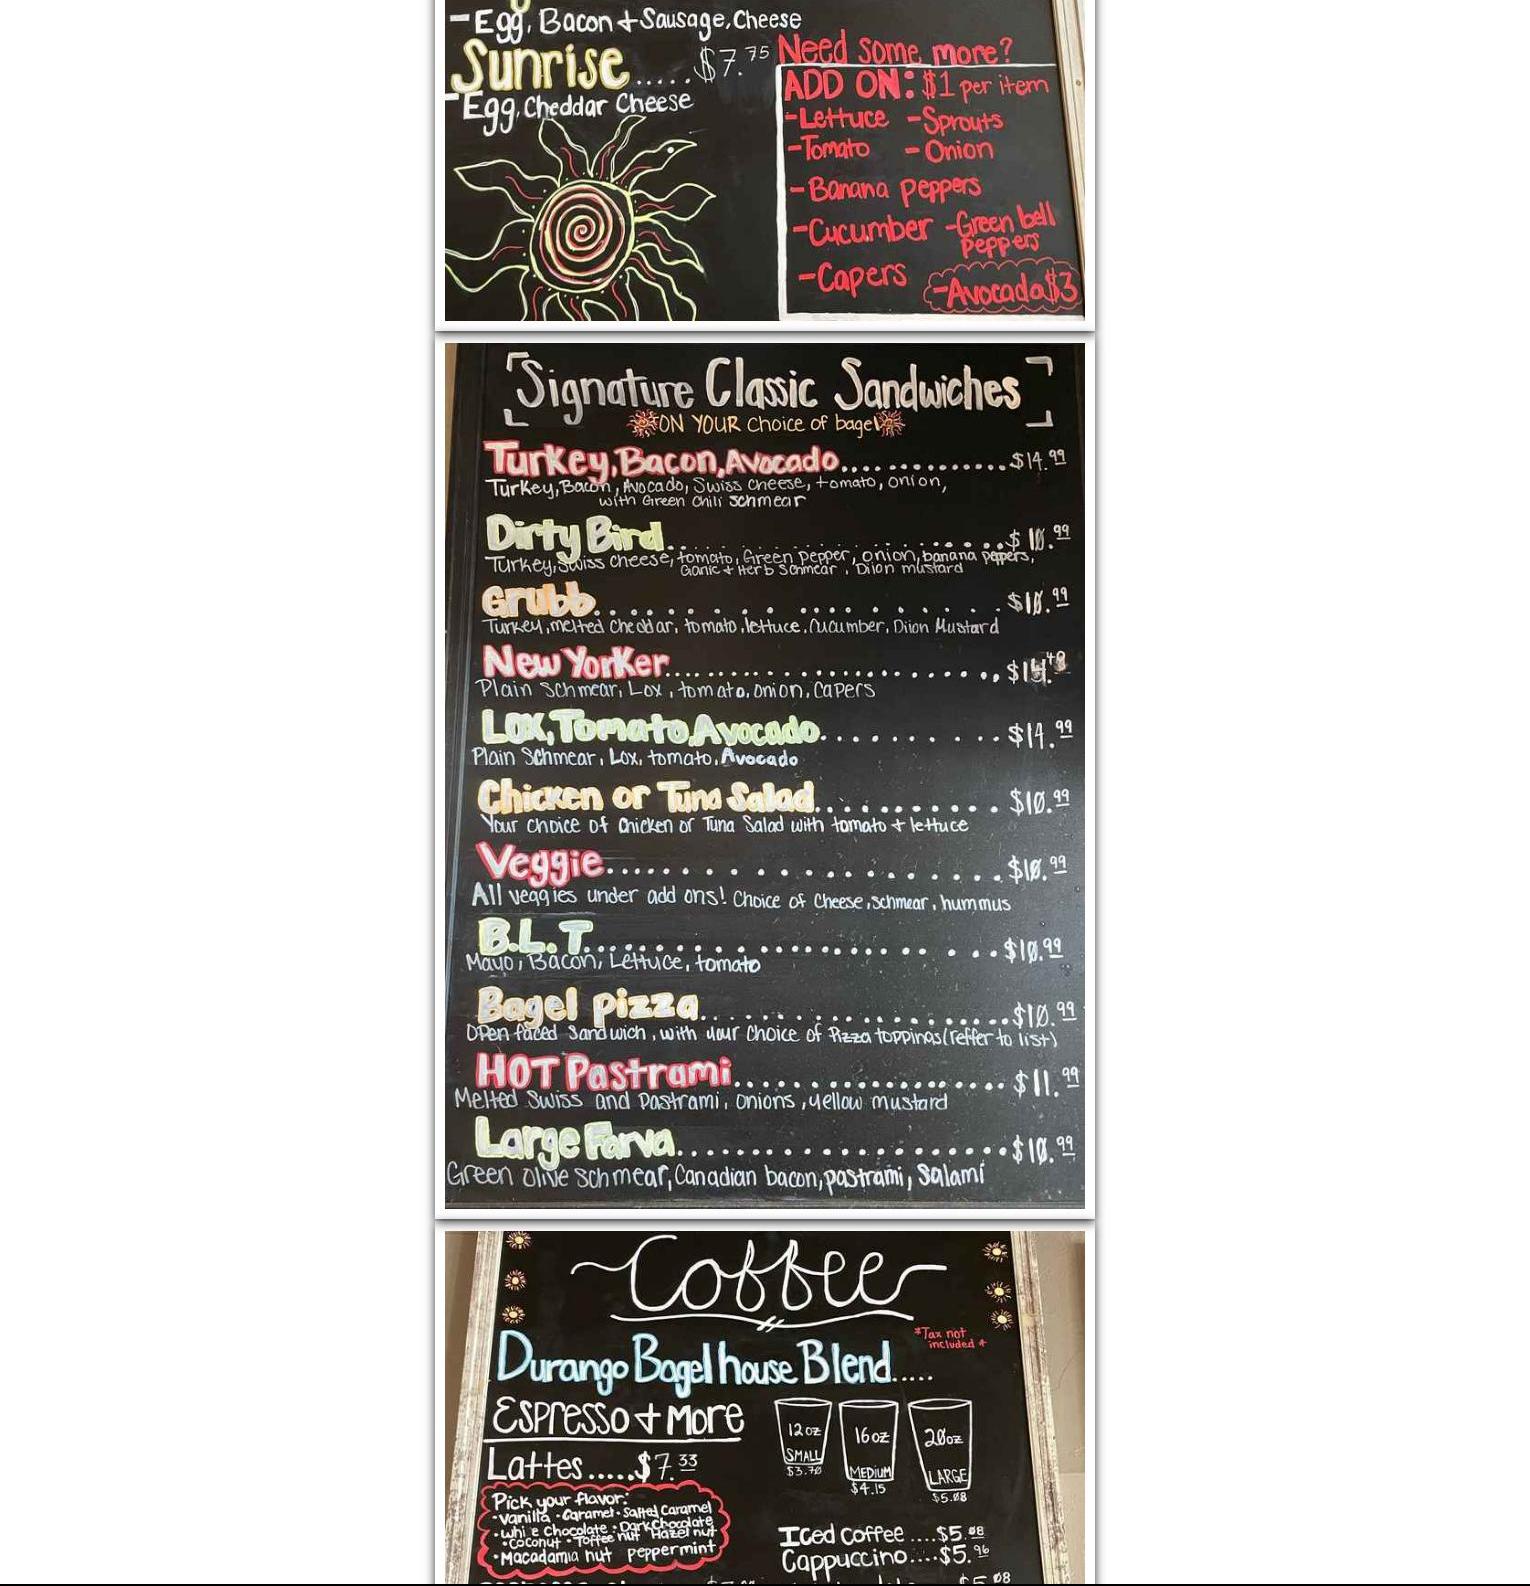 -Egg, Bacon + Sausage, Cheese
Sunrise..... $7.75
-Egg, Cheddar Cheese
Need some more?
ADD ON: $1 per item
-Lettuce -Sprouts
-Tomato -Onion
-Banana peppers
-Cucumber -Green bell peppers
-Capers -Avocado $3
Signature Classic Sandwiches
ON YOUR Choice of bagel
Turkey, Bacon, Avocado.............. $14.99
Turkey, Bacon, Avocado, Swiss cheese, tomato, onion,
with Green Chili schmear
Dirty Bird.................... $10.99
Turkey, Swiss cheese, tomato, Green pepper, onion, banana peppers,
Garlic + Herb Schmear, Dijon mustard
Grubb.................... $10.99
Turkey, melted cheddar, tomato, lettuce, Cucumber, Dijon Mustard
New Yorker....................
Plain Schmear, Lox, tomato, onion, Capers
Lox, Tomato, Avocado.......... $14.99
Plain Schmear, Lox, tomato, Avocado
Chicken or Tuna Salad............ $10.99
Your choice of Chicken or Tuna Salad with tomato + lettuce
Veggie.................... $10.99
All veggies under add ons! Choice of Cheese, schmear, hummus
B.L.T.................... $10.99
Mayo, Bacon, Lettuce, tomato
Bagel pizza.................... $10.99
Open faced Sandwich, with your Choice of Pizza toppings (reffer to list)
HOT Pastrami.................... $11.99
Melted Swiss and Pastrami, onions, yellow mustard
Large Farva.................... $10.99
Green Olive schmear, Canadian bacon, pastrami, Salami
Coffee
*Tax not included*
Durango Bagel house Blend.....
Espresso + More
12oz SMALL $3.70
16oz MEDIUM $4.15
20oz LARGE $5.08
Lattes.....$7.33
Pick your flavor:
•Vanilla •Caramel •Salted Caramel
•Whi e Chocolate •Dark Chocolate
•Coconut •Toffee nut Hazel nut
•Macadamia nut peppermint
Iced coffee ....$5.08
Cappuccino....$5.96
$5.08